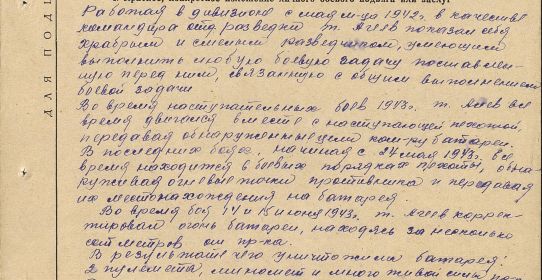 Краткое, конкретное изложение личного боевого подвига или заслуг
Работая в дивизионе с мая м-ца 1942 г. в качестве
командира отд. разведки т. Агеев показал себя
храбрым и смелым разведчиком, умеющим
выполнить любую боевую задачу поставлен-
ную перед ним, связанную с общим выполнением
боевой задачи
Во время наступательных боев 1943 г. т. Агеев все
время двигался вместе с наступающей пехотой
передавая обнаруженные цели ком-ру батареи.
В последних боях, начиная с 24 мая 1943 г. все
время находится в боевых порядках пехоты, обна-
руживая огневые точки противника и передавая
их местонахождения на батарея.
Во время боя 14 и 15 июня 1943 г. т. Агеев коррек-
тировал огонь батареи, находясь за несколько
сот метров от пр-ка.
В результате чего уничтожила батарея:
2 пулемета, миномет и много живой силы
ДЛЯ ПОДШ